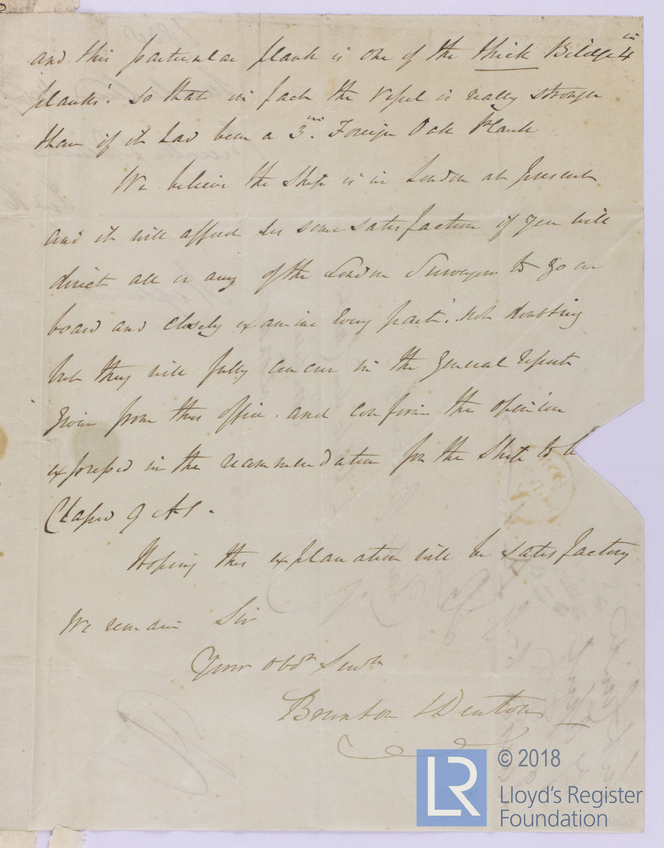 and this particular plank is one of the thick Bildge 4 in
planks. So that in fact the Vessel is really stronger
than if it had been a 3 in. Foreign Oak Plank
We believe the Ship is in London at present
and it will afford us some satisfaction if you will
direct all or any of the London Surveyors to go on
board and closely examine every part. Not doubting
but they will fully concur in the General Report
given from this office. and confirm the opinion
expressed in the recommendation for the Ship to be
Classed 9 A1.
Hoping this explanation will be satisfactory
We remain Sir
Your obdt Servts
Brunton & Denton
LR
© 2018
Lloyd's Register
Foundation